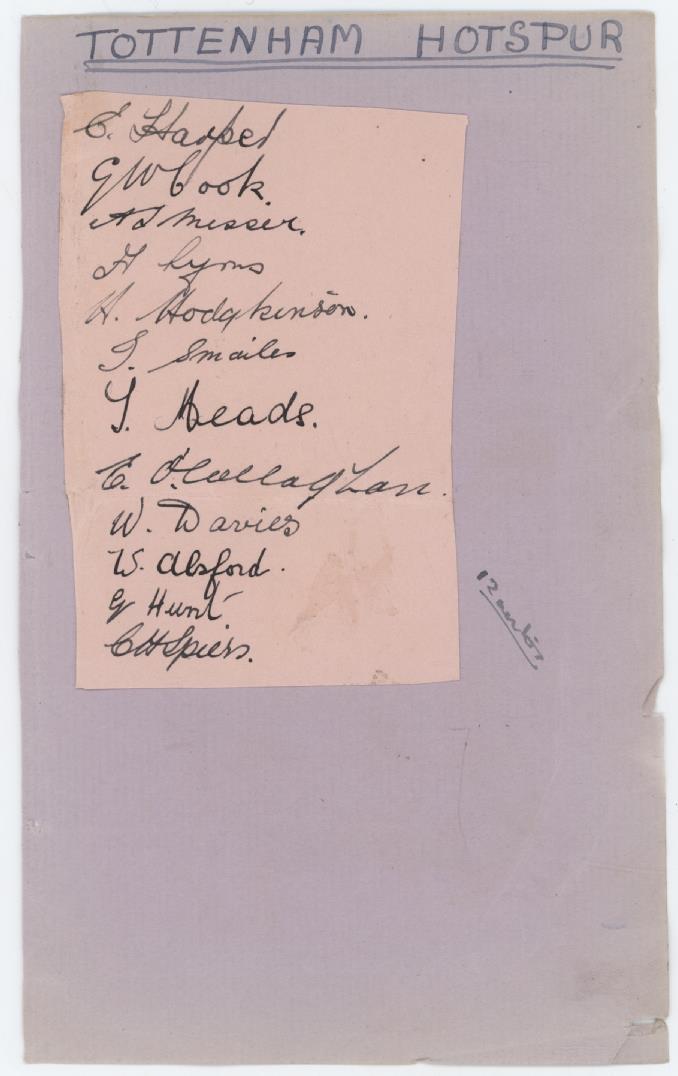 TOTTENHAM HOTSPUR
E. Harper
G W Cook.
A T Messer.
A Lyons
H. Hodgkinson.
J. Smailes
T. Meads.
E. O'Callaghan.
W. Davies
W. Alsford.
G Hunt
C H Spiers.
12